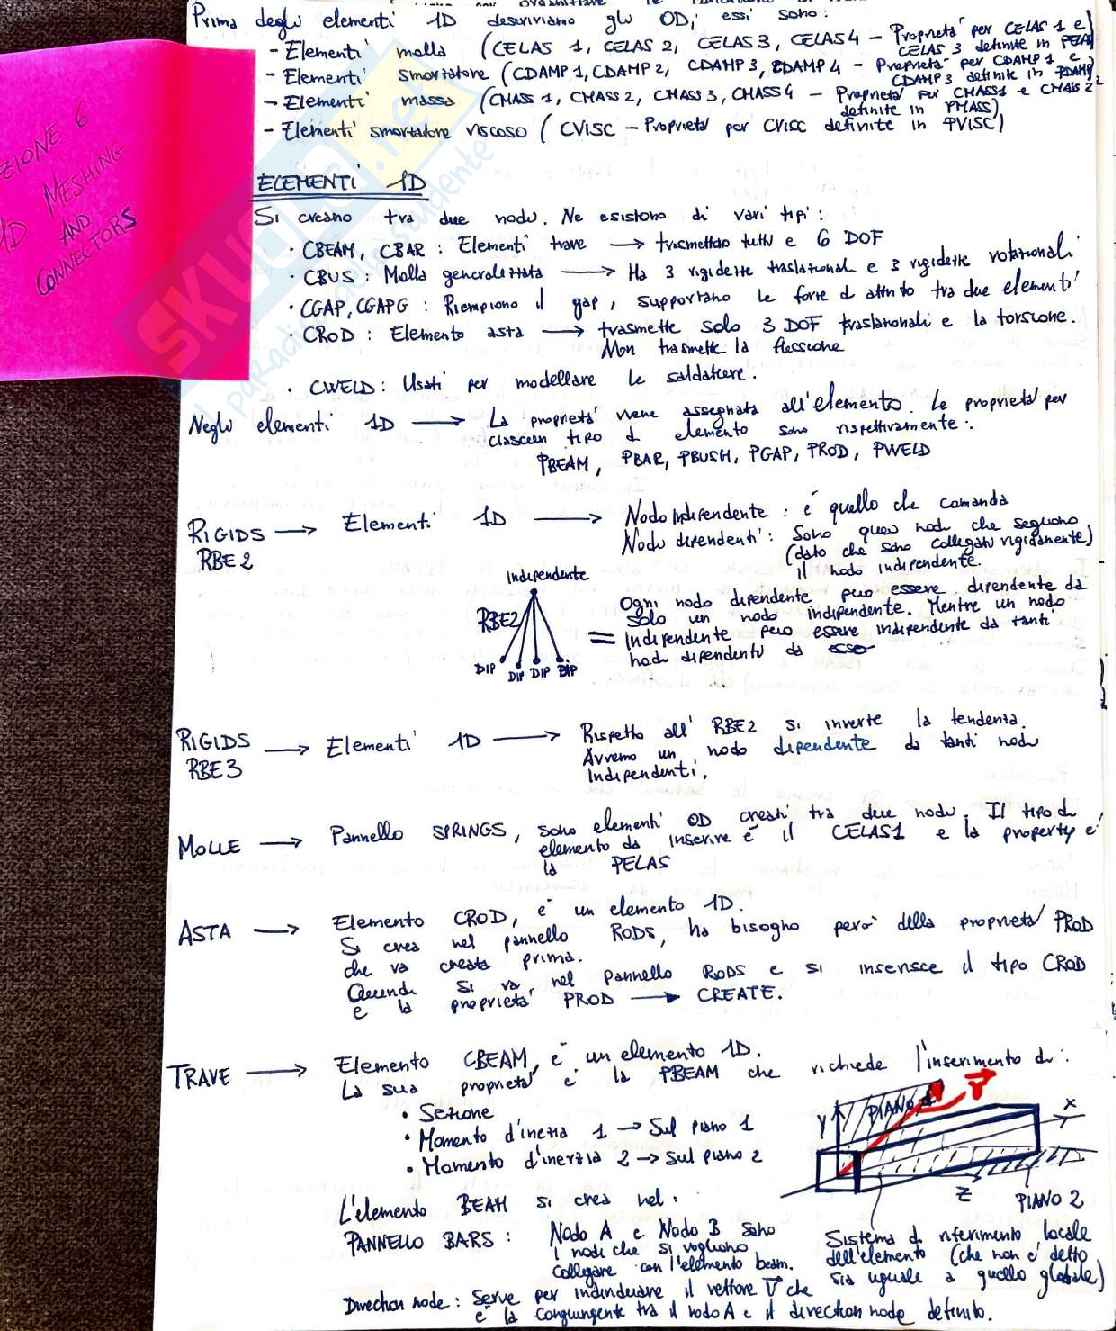 Prima degli elementi 1D descriviamo gli 0D, essi sono:
- Elementi molla (CELAS 1, CELAS 2, CELAS 3, CELAS 4 - Proprietà per CELAS 1 e
CELAS 3 definite in PELAS)
- Elementi smorzatore (CDAMP 1, CDAMP 2, CDAMP 3, CDAMP 4 - Proprietà per CDAMP 1 e
CDAMP 3 definite in PDAMP)
- Elementi massa (CMASS 1, CMASS 2, CMASS 3, CMASS 4 - Proprietà per CMASS1 e CMASS 2
definite in PMASS)
- Elementi smorzatore viscoso (CVISC - Proprietà per CVISC definite in PVISC)
LEZIONE 6
1D MESHING
AND
CONNECTORS
ELEMENTI 1D
Si creano tra due nodi. Ne esistono di vari tipi:
· CBEAM, CBAR : Elementi trave → trasmettono tutti e 6 DOF
· CBUS : Molla generalizzata → Ha 3 rigidezze traslazionali e 3 rigidezze rotazionali
· CGAP, CGAPG : Riempiono il gap, supportano le forze d attrito tra due elementi
· CROD : Elemento asta → trasmette solo 3 DOF traslazionali e la torsione.
Non trasmette la flessione
· CWELD : Usati per modellare le saldature.
Negli elementi 1D → La proprietà viene assegnata all'elemento. Le proprietà per
ciascun tipo d elemento sono rispettivamente:
PBEAM, PBAR, PBUSH, PGAP, PROD, PWELD
RIGIDS → Elementi 1D → Nodo Indipendente : è quello che comanda
RBE2
Nodi dipendenti : Sono quei nodi che seguono
(dato che sono collegati rigidamente)
il nodo indipendente.
Independente
RBE2
DIP DIP DIP DIP
= Ogni nodo dipendente può essere dipendente da
solo un nodo indipendente. Mentre un nodo
Indipendente può essere indipendente da tanti
nodi dipendenti da esso
RIGIDS → Elementi 1D → Rispetto all' RBE2 si inverte la tendenza.
RBE3
Avremo un nodo dipendente da tanti nodi
Indipendenti.
MOLLE → Pannello SPRINGS, sono elementi 0D creati tra due nodi. Il tipo di
elemento da inserire è il CELAS1 e la property è
la PELAS
ASTA → Elemento CROD, è un elemento 1D.
Si crea nel pannello RODS, ha bisogno però della proprietà PROD
che va creata prima.
Quindi si va nel pannello RODS e si inserisce il tipo CROD
e la proprietà PROD → CREATE.
TRAVE → Elemento CBEAM, è un elemento 1D.
La sua proprietà è la PBEAM che richiede l'inserimento di:
• Sezione
• Momento d'inerzia 1 → Sul piano 1
• Momento d'inerzia 2 → Sul piano 2
PIANO 1
V
Y
X
Z
PIANO 2
L'elemento BEAM si crea nel.
PANNELLO BARS : Nodo A e Nodo B sono
i nodi che si vogliono
collegare con l'elemento beam.
Sistema d riferimento locale
dell'elemento (che non è detto
sia uguale a quello globale)
Direction node : Serve per individuare il vettore V che
è la congiungente tra il nodo A e il direction node definito.